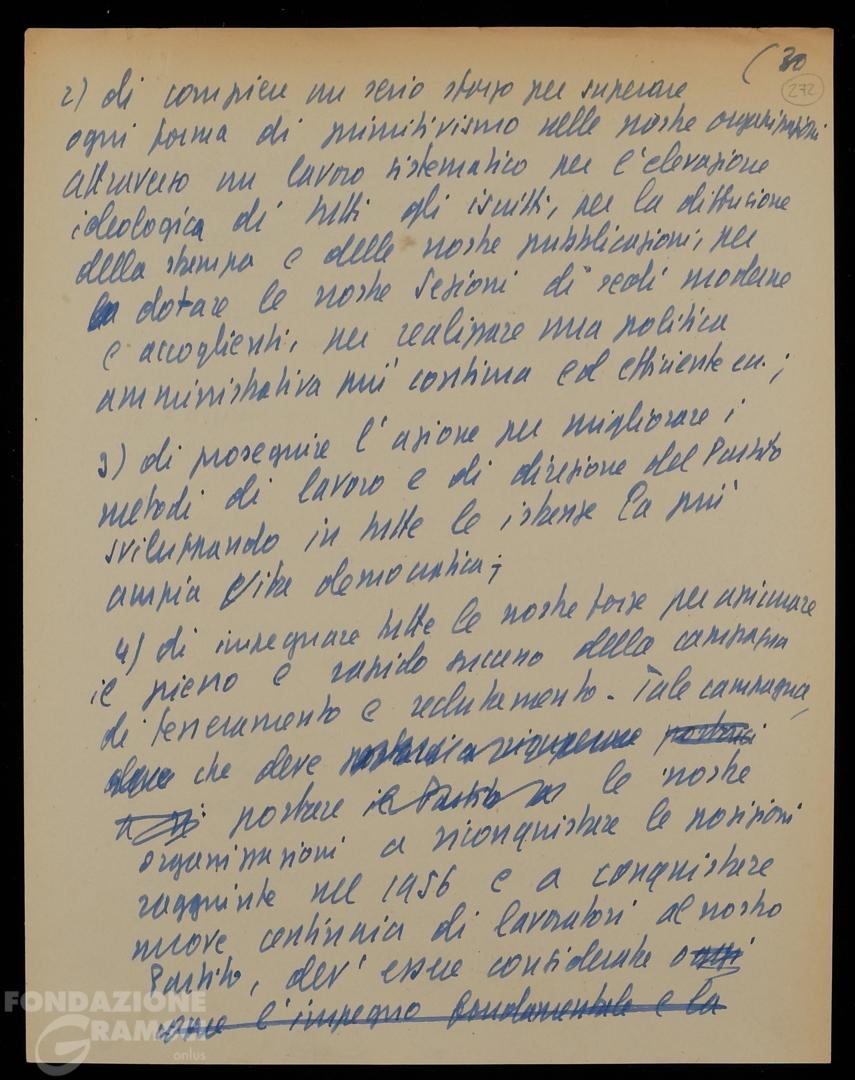 (30
272
2) di compiere un serio sforzo per superare
ogni forma di primitivismo nelle nostre organizzazioni
attraverso un lavoro sistematico per l'elevazione
ideologica di tutti gli iscritti, per la diffusione
della stampa e delle nostre pubblicazioni, per
dotare le nostre Sezioni di sedi moderne
e accoglienti, per realizzare una politica
amministrativa più continua ed efficiente ecc.;
3) di proseguire l'azione per migliorare i
metodi di lavoro e di direzione del Partito
sviluppando in tutte le istanze la più
ampia vita democratica;
4) di impegnare tutte le nostre forze per assicurare
il pieno e rapido successo della campagna
di tesseramento e reclutamento. Tale campagna,
che deve
portare il Partito le nostre
organizzazioni a riconquistare le posizioni
raggiunte nel 1956 e a conquistare
nuove centinaia di lavoratori al nostro
Partito, dev'essere considerata
come l'impegno fondamentale e la
FONDAZIONE
GRAMSCI
onlus